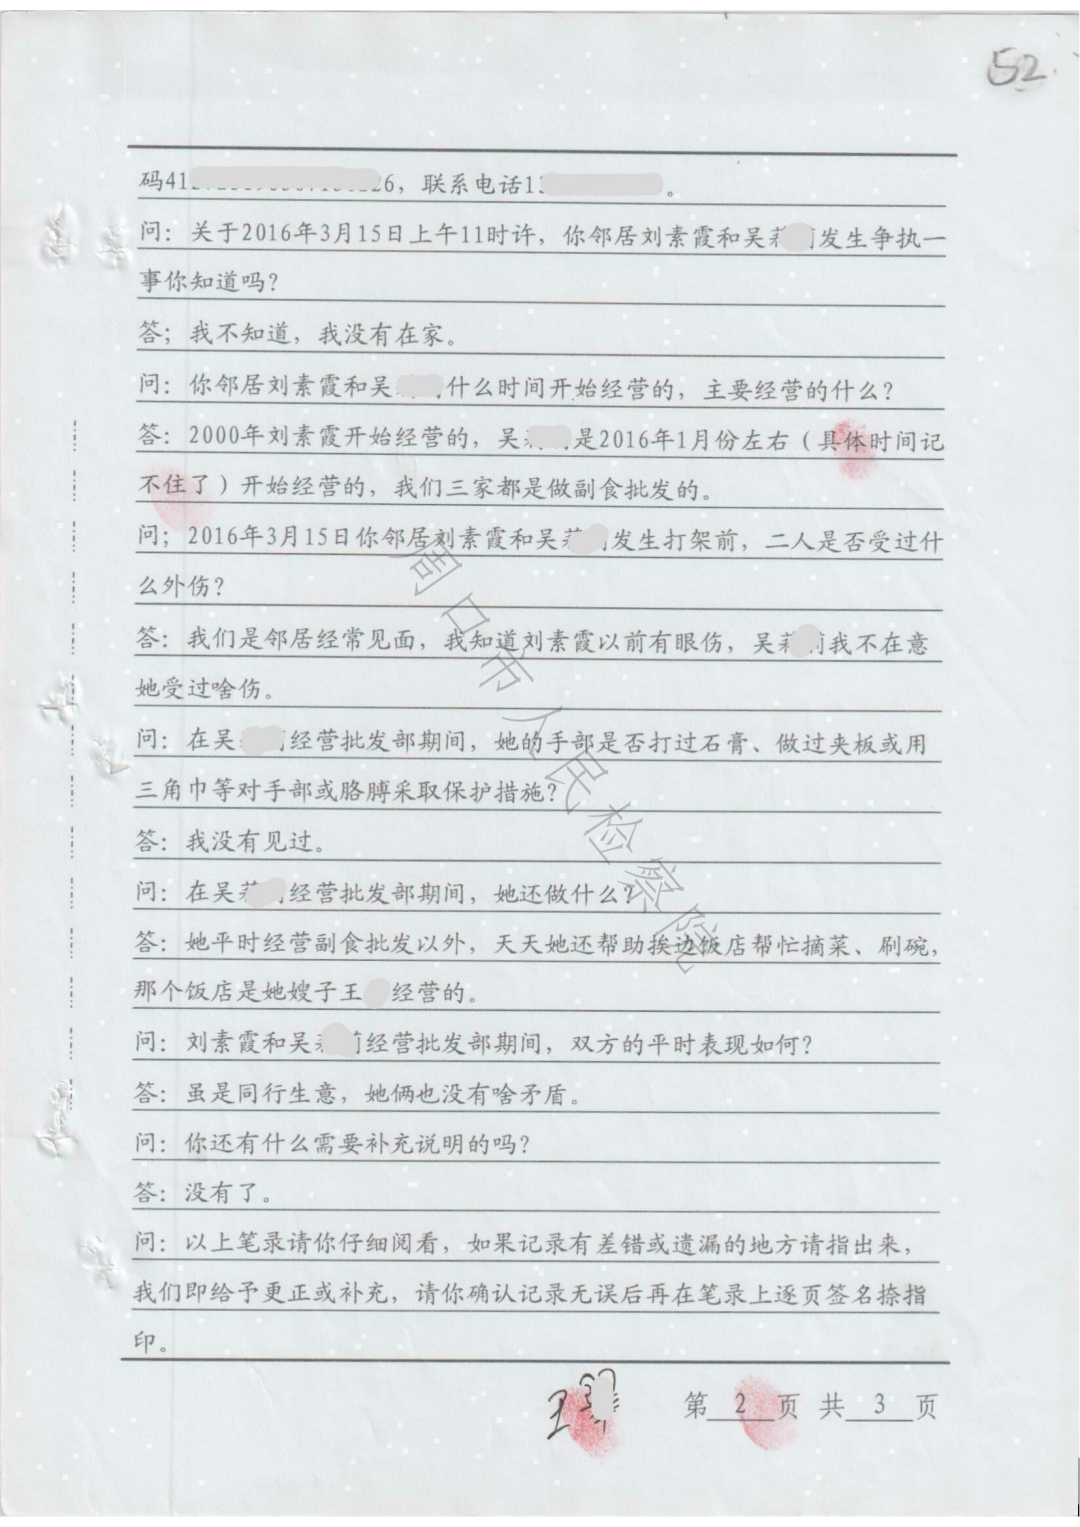 52
码41 26，联系电话1 。
问：关于2016年3月15日上午11时许，你邻居刘素霞和吴 发生争执一
事你知道吗？
答；我不知道，我没有在家。
问：你邻居刘素霞和吴 什么时间开始经营的，主要经营的什么？
答：2000年刘素霞开始经营的，吴 是2016年1月份左右（具体时间记
不住了）开始经营的，我们三家都是做副食批发的。
问；2016年3月15日你邻居刘素霞和吴 发生打架前，二人是否受过什
么外伤？
答：我们是邻居经常见面，我知道刘素霞以前有眼伤，吴 我不在意
她受过啥伤。
问：在吴 经营批发部期间，她的手部是否打过石膏、做过夹板或用
三角巾等对手部或胳膊采取保护措施？
答：我没有见过。
问：在吴 经营批发部期间，她还做什么？
答：她平时经营副食批发以外，天天她还帮助挨边饭店帮忙摘菜、刷碗，
那个饭店是她嫂子王 经营的。
问：刘素霞和吴 经营批发部期间，双方的平时表现如何？
答：虽是同行生意，她俩也没有啥矛盾。
问：你还有什么需要补充说明的吗？
答：没有了。
问：以上笔录请你仔细阅看，如果记录有差错或遗漏的地方请指出来，
我们即给予更正或补充，请你确认记录无误后再在笔录上逐页签名捺指
印。
王
第 2 页 共 3 页
周口市人民检察院